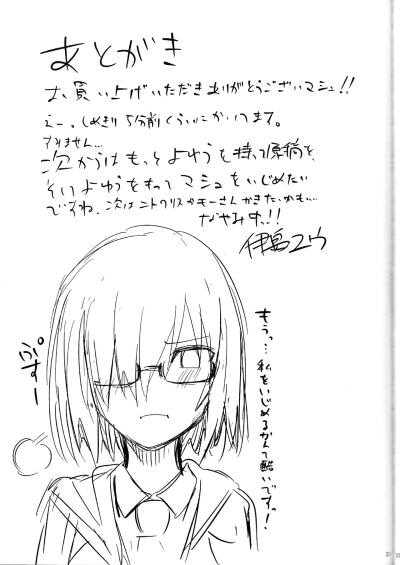 あとがき
お買い上げいただきありがとうございマシュ!!
えー、しめきり5分前くらいにかいてます。
すみません…
次からはもっとよゆうを持って原稿を、
そしてよゆうをもってマシュをいじめたい
ですね、次はニトクリスかモーさんかきたいかも…
なやみ中!!
伊島ユウ
もうっ…私をいじめるなんて酷いですっ!
ぷすー